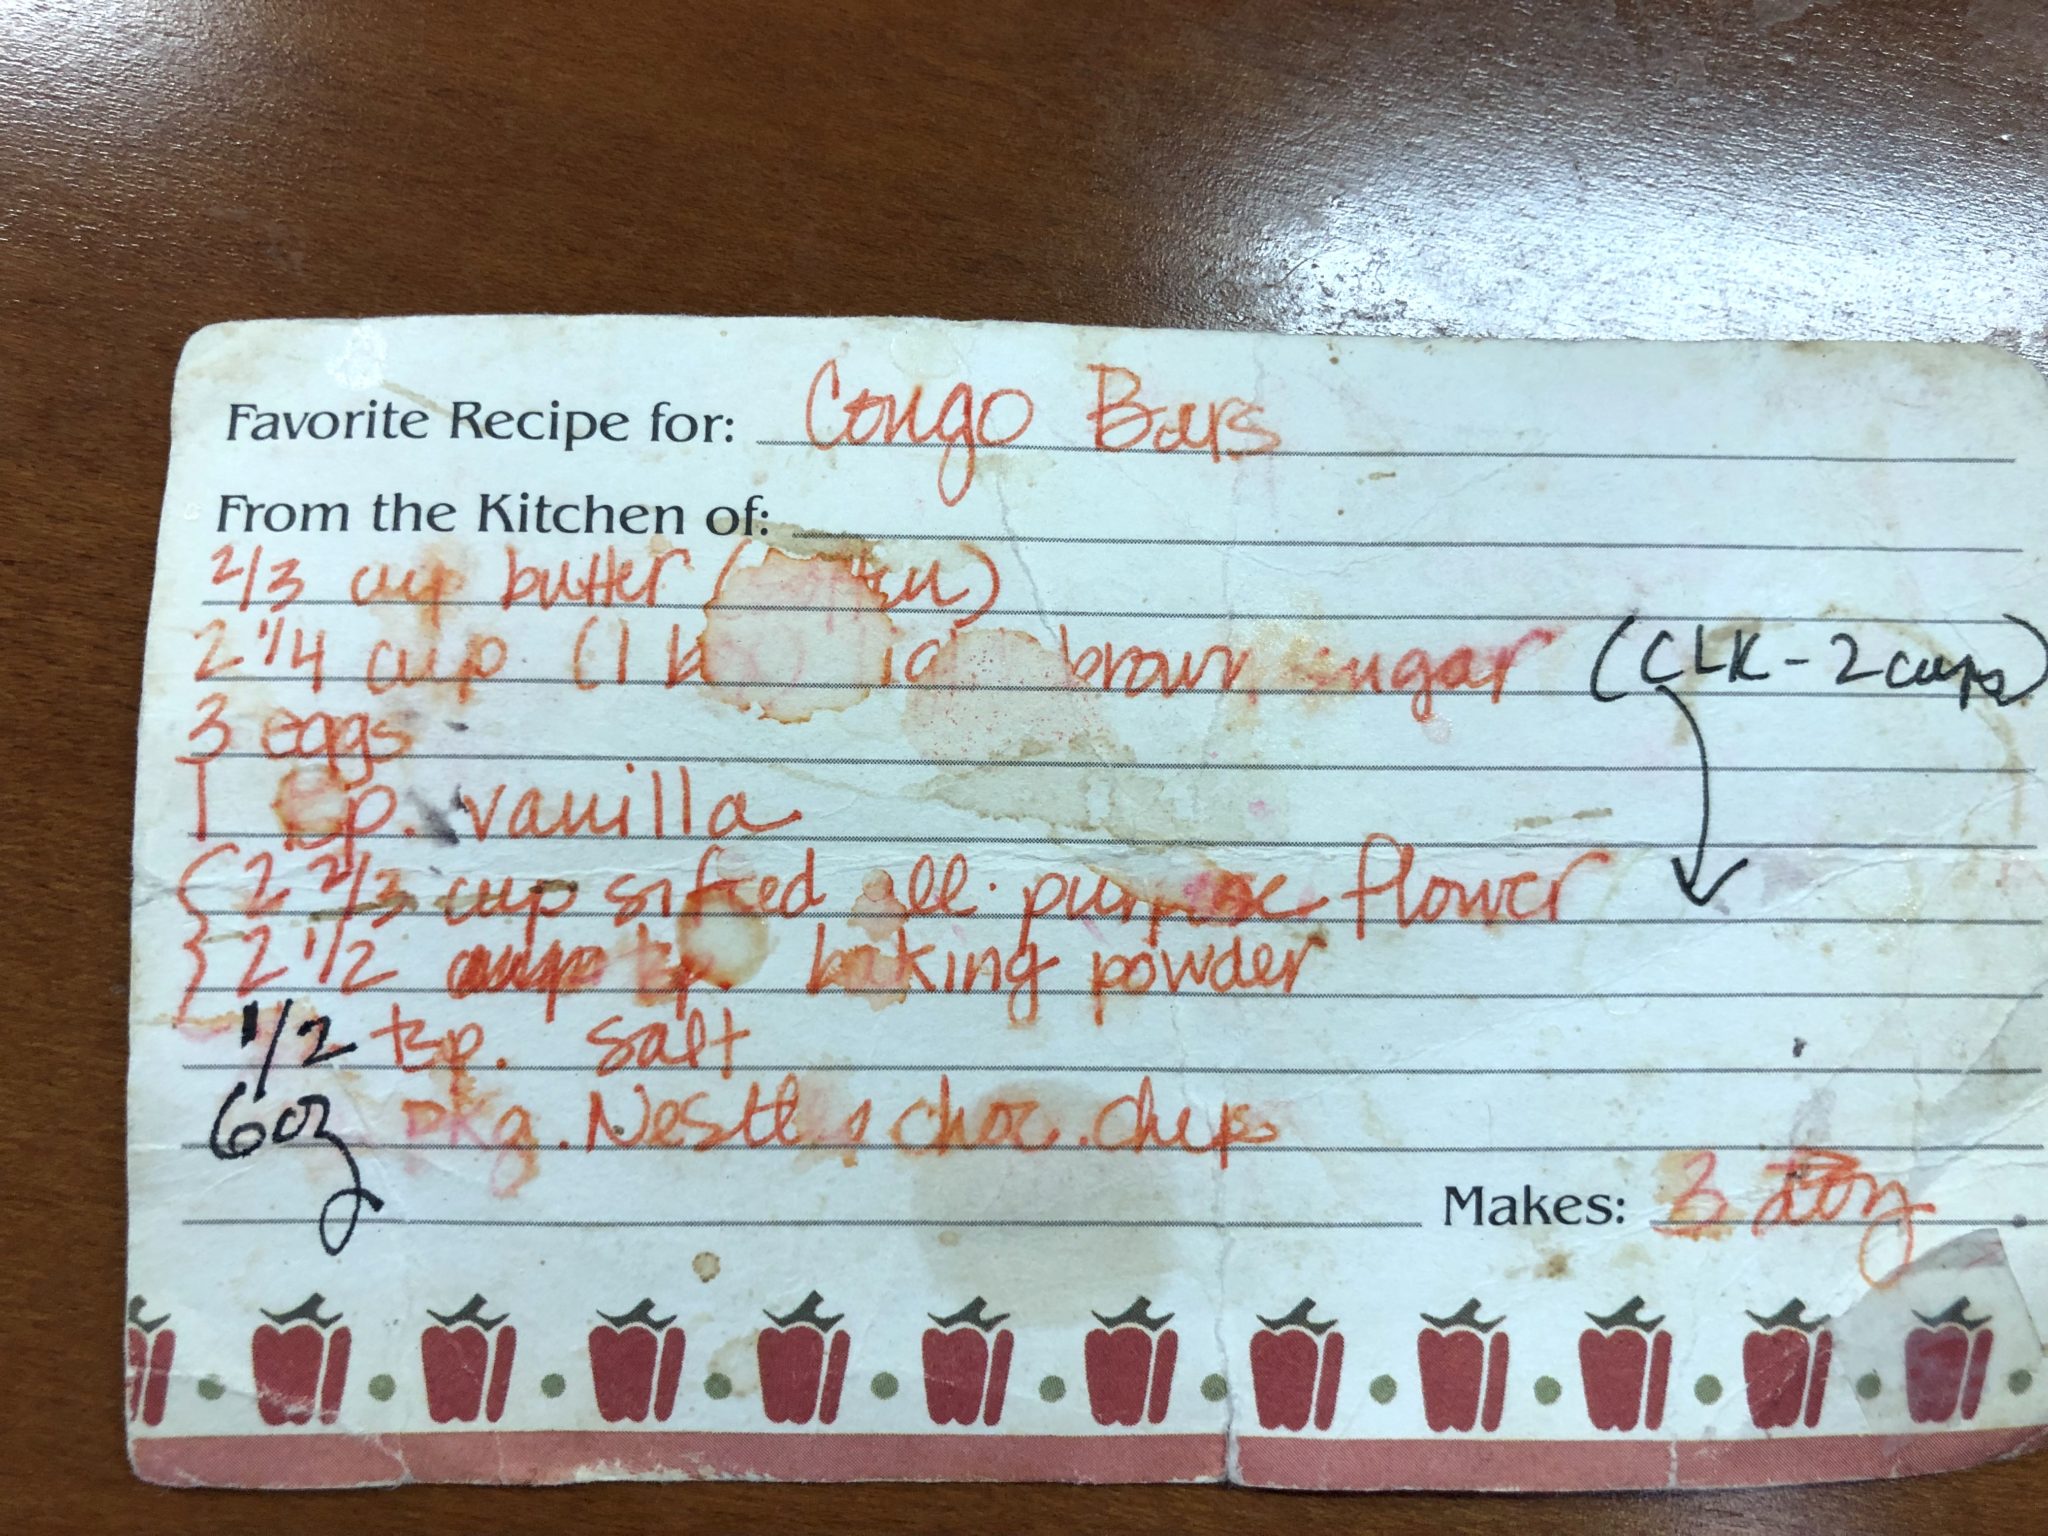 Favorite Recipe for: Congo Bars
From the Kitchen of:
2/3 cup butter
2 1/4 cup (1 brown sugar (CLK - 2 cups)
3 eggs
1 vanilla
2 2/3 cup sifted all purpose flower
2 1/2 tsp baking powder
1/2 tsp. salt
6oz pkg. Nestle choc. chips
Makes: 3 doz